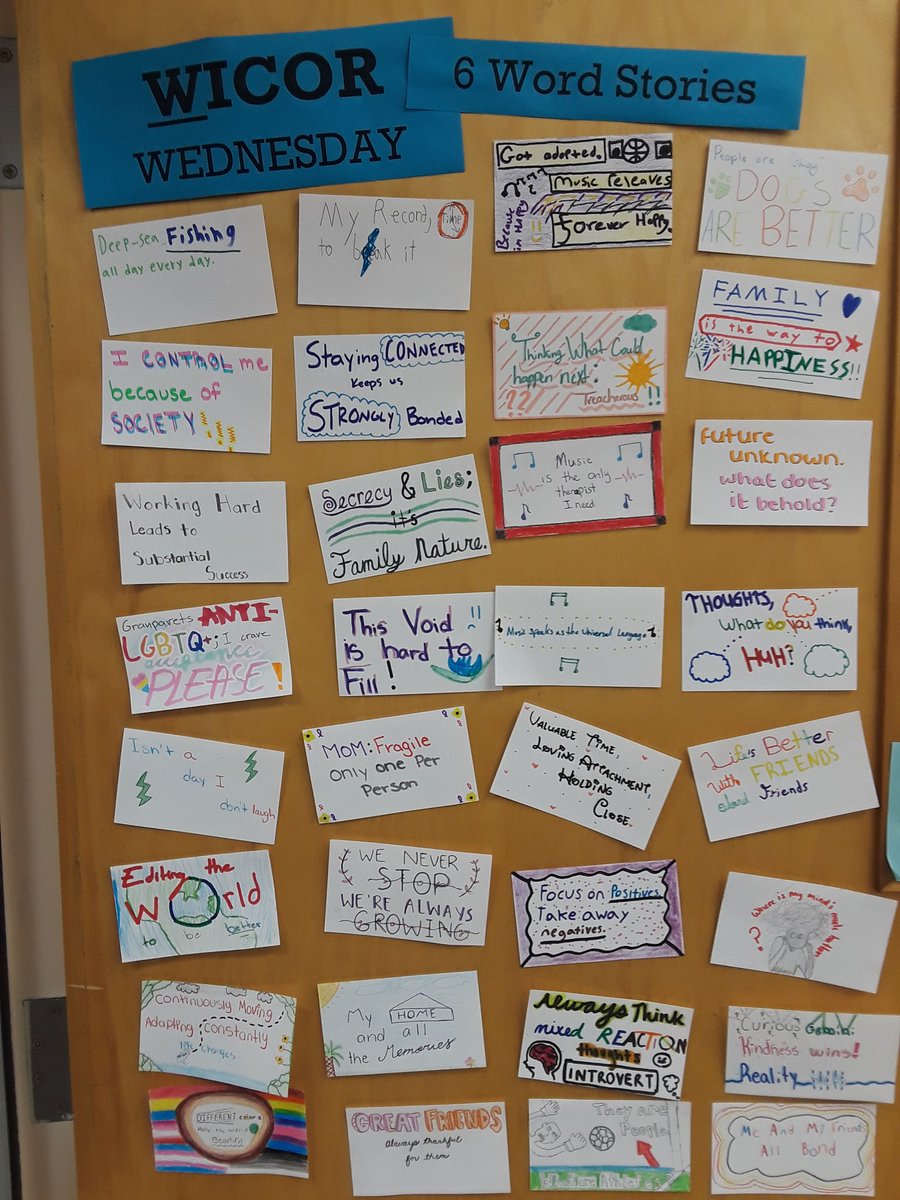 WICOR
WEDNESDAY
6 Word Stories
Deep-sea Fishing
all day every day.
My Record, time
to break it
Got adopted.
Music releaves
Forever Happy.
Because
in Happy
People are "okay"
DOGS
ARE BETTER
I CONTROL me
because of
SOCIETY
Staying CONNECTED
Keeps us
STRONGLY Bonded
Thinking What Could
happen next:
Treacherous!!
??
FAMILY
is the way to
HAPPINESS!!
Working Hard
Leads to
Substantial
Success
Secrecy & Lies;
it's
Family Nature.
Music
is the only
therapist
I need
Future
unknown.
what does
it behold?
Granparets ANTI-
LGBTQ+; I crave
acceptance
PLEASE!
This Void !!
is hard to
Fill!
Music Speaks as the Universal Language
THOUGHTS,
What do you think,
HUH?
Isn't a
day I
don't laugh
MOM: Fragile
only one Per
Person
VALUABLE TIME,
LOVING ATTACHMENT,
HOLDING
CLOSE.
Life's Better
With FRIENDS
and Friends
Editing the
World
to be better
WE NEVER
STOP
WE'RE ALWAYS
GROWING
Focus on Positives.
Take away
negatives.
Where is my mind's
Continuously Moving
Adapting constantly
life changes
My HOME
and all
the Memories
Always Think
mixed REACTION
thoughts
INTROVERT
Curious
Kindness wins!
Reality
DIFFERENT colors
the world
Beautiful
GREAT FRIENDS
Always thankful
for them
They are
People
Me And My friends
All Bond